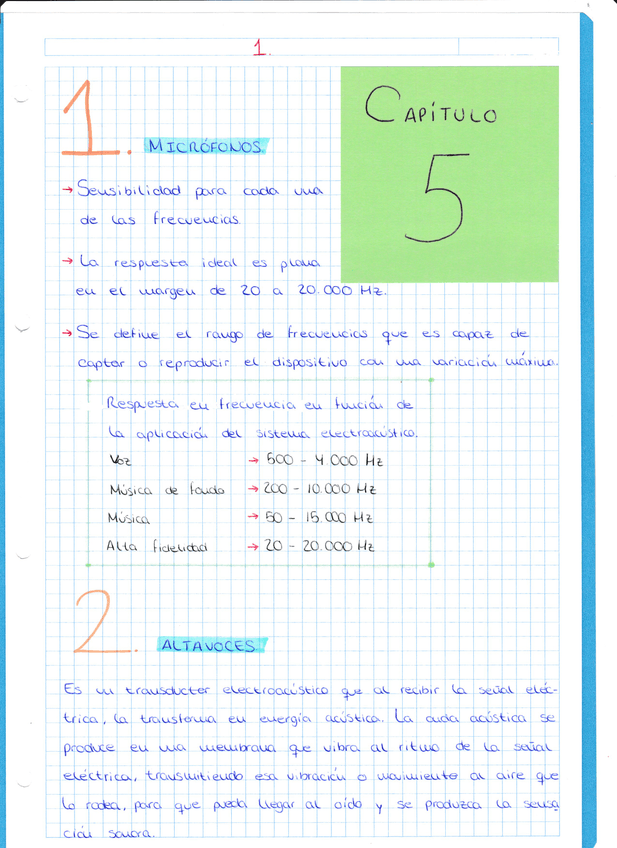 1.
CAPÍTULO
5
1. MICRÓFONOS
→ Sensibilidad para cada una
de las frecuencias.
→ La respuesta ideal es plana
en el margen de 20 a 20.000 Hz.
→ Se define el rango de frecuencias que es capaz de
captar o reproducir el dispositivo con una variación máxima.
Respuesta en frecuencia en función de
la aplicación del sistema electroacústico.
Voz → 500 - 4.000 Hz
Música de fondo → 200 - 10.000 Hz
Música → 50 - 15.000 Hz
Alta fidelidad → 20 - 20.000 Hz
2. ALTAVOCES
Es un transducter electroacústico que al recibir la señal eléc-
trica, la transforma en energía acústica. La onda acústica se
produce en una membrana que vibra al ritmo de la señal
eléctrica, transmitiendo esa vibración o movimiento al aire que
lo rodea, para que pueda llegar al oído y se produzca la sensa
ción sonora.